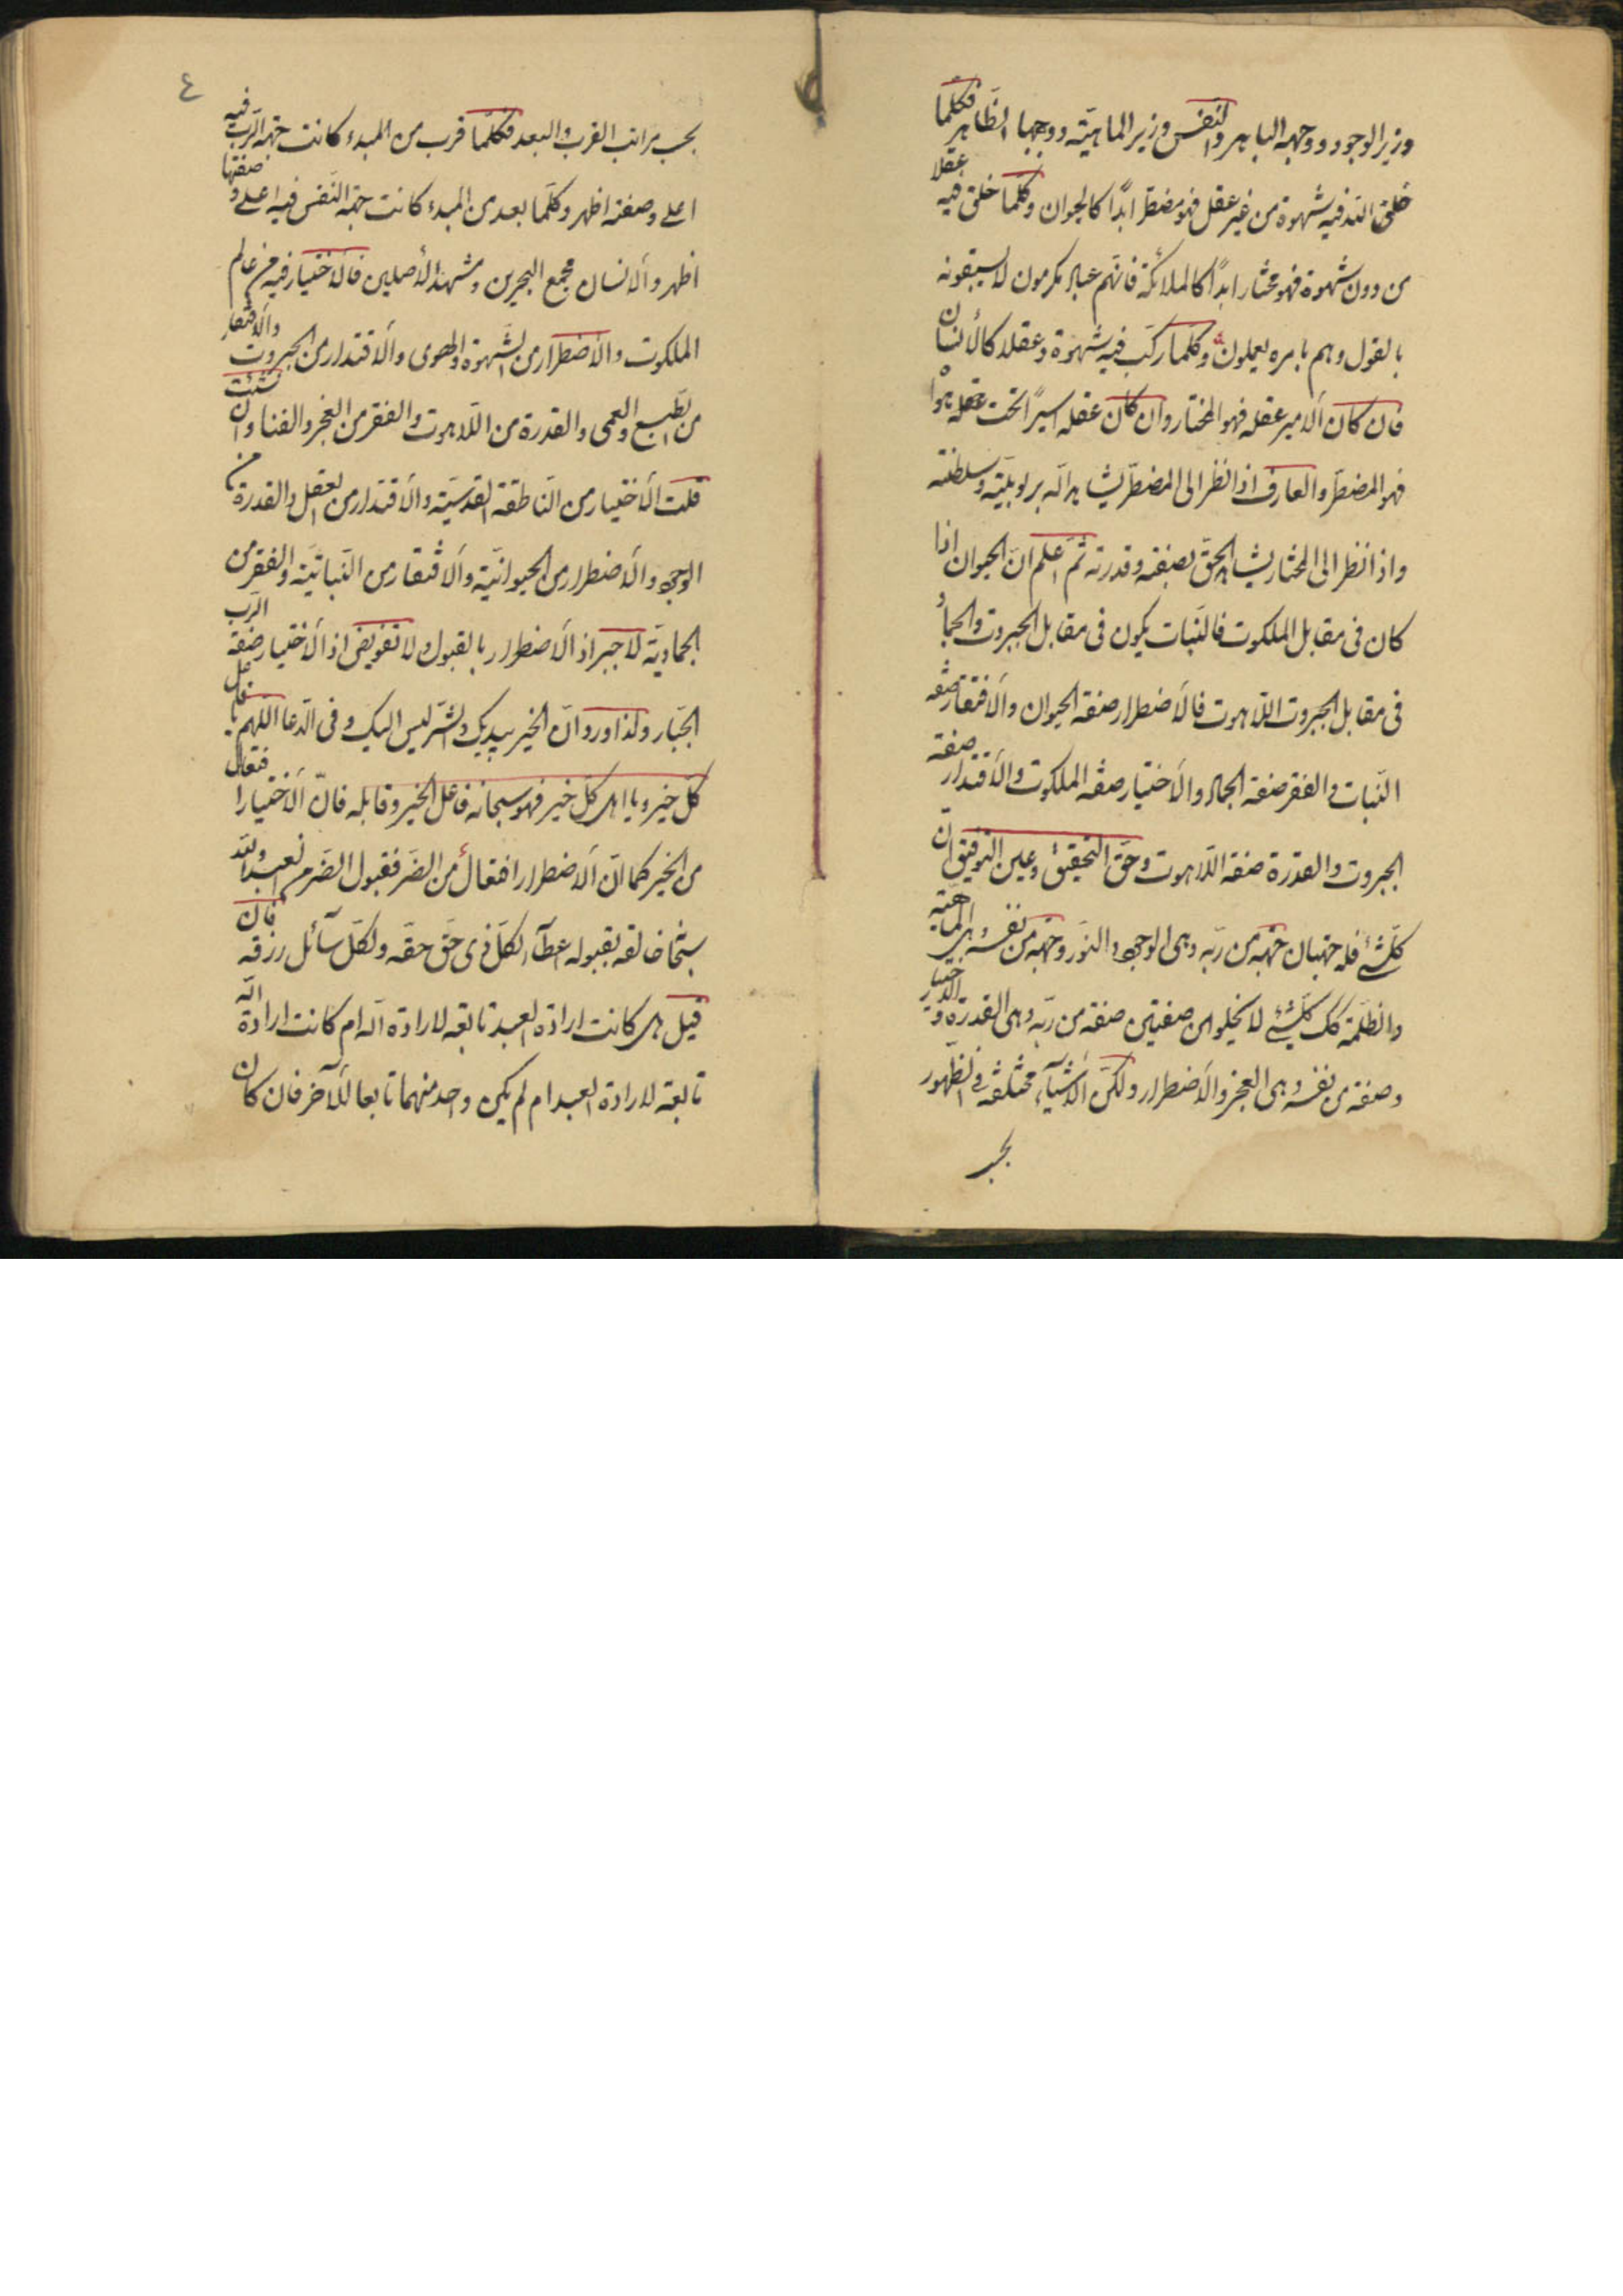 وزير الوجود ووجهه الباهر والنفس وزير الماهيّته ووجهها الظاهر فكلّما
خلق الله فيه شهوة من غير عقل فهو مضطرّ ابدًا كالحيوان وكلّما خلق فيه عقلا
من دون شهوة فهو مختار ابدًا كالملائكة فانّهم عباد مكرمون لا يسبقونه
بالقول وهم بامره يعملون وكلّما ركّب فيه شهوة وعقلا كالأنسان
فان كان الامير عقله فهو المختار وان كان عقله اسيرًا تحت هواه
فهو المضطرّ والعارف اذا نظر الى المضطرّ يشاهد اللّه بربوبيّته وسلطنته
واذا نظر الى المختار يشاهد الحقّ بصفته وقدرته ثمّ اعلم انّ الحيوان اذا
كان فى مقابل الملكوت فالنّبات يكون فى مقابل الجبروت والجماد
فى مقابل الجبروت اللّاهوت فالأضطرار صفة الحيوان والأفتقار صفة
النّبات والفقر صفة الجماد والأختيار صفة الملكوت والأقتدار صفة
الجبروت والقدرة صفة اللّاهوت وحقّ التحقيق وعين التوفيق انّ
كلّشئ فله جهتان جهة من ربّه وهى الوجود والنّور وجهة من نفسه وهى الماهيّة
والظّلمة كك كلّشئ لا يخلو من صفتين صفة من ربّه وهى القدرة والأختيار
وصفة من نفسه وهى العجز والأضطرار ولكنّ الأشيآء مختلفة فى الظّهور
بحسب
٤
بحسب مراتب القرب والبعد فكلّما قرب من المبدء كانت جهة الرّب فيه
اعلى وصفته اظهر وكلّما بعد من المبدء كانت جهة النّفس فيه اعلى وصفتها
اظهر والانسان مجمع البحرين ومشهد الأصلين فالأختيار فيه من عالم
الملكوت والأضطرار من الشّهوة والهوى والأقتدار من الجبروت والأفتقار
من الطّبع والعمى والقدرة من اللّاهوت والفقر من العجز والفنا وان شئت
قلت الأختيار من النّاطقة القدسيّة والأقتدار من العقل والقدرة من
الوجود والأضطرار من الحيوانيّة والأفتقار من النّباتيّة والفقر من
الجماديّة لا جبر اذ الأضطرار بالقبول ولا تفويض اذ الأختيار صفة الرّب
الجبّار ولذا ورد انّ الخير بيديك والشّر ليس اليك وفى الدّعا اللّهم يا فاعل
كلّ خير ويا اهل كلّ خير فهو سبحانه فاعل الخير وقابله فانّ الأختيار افتعال
من الخير كما انّ الأضطرار افتعال من الضّر فقبول الضّر من العبد والله
سبحانه خالقه بقبوله اعطآء لكلّ ذى حقّ حقّه ولكلّ سآئل رزقه فان
قيل هل كانت ارادة العبد تابعة لارادة اللّه ام كانت ارادة اللّه
تابعة لارادة العبد ام لم يكن واحد منهما تابعا للآخر فان كان